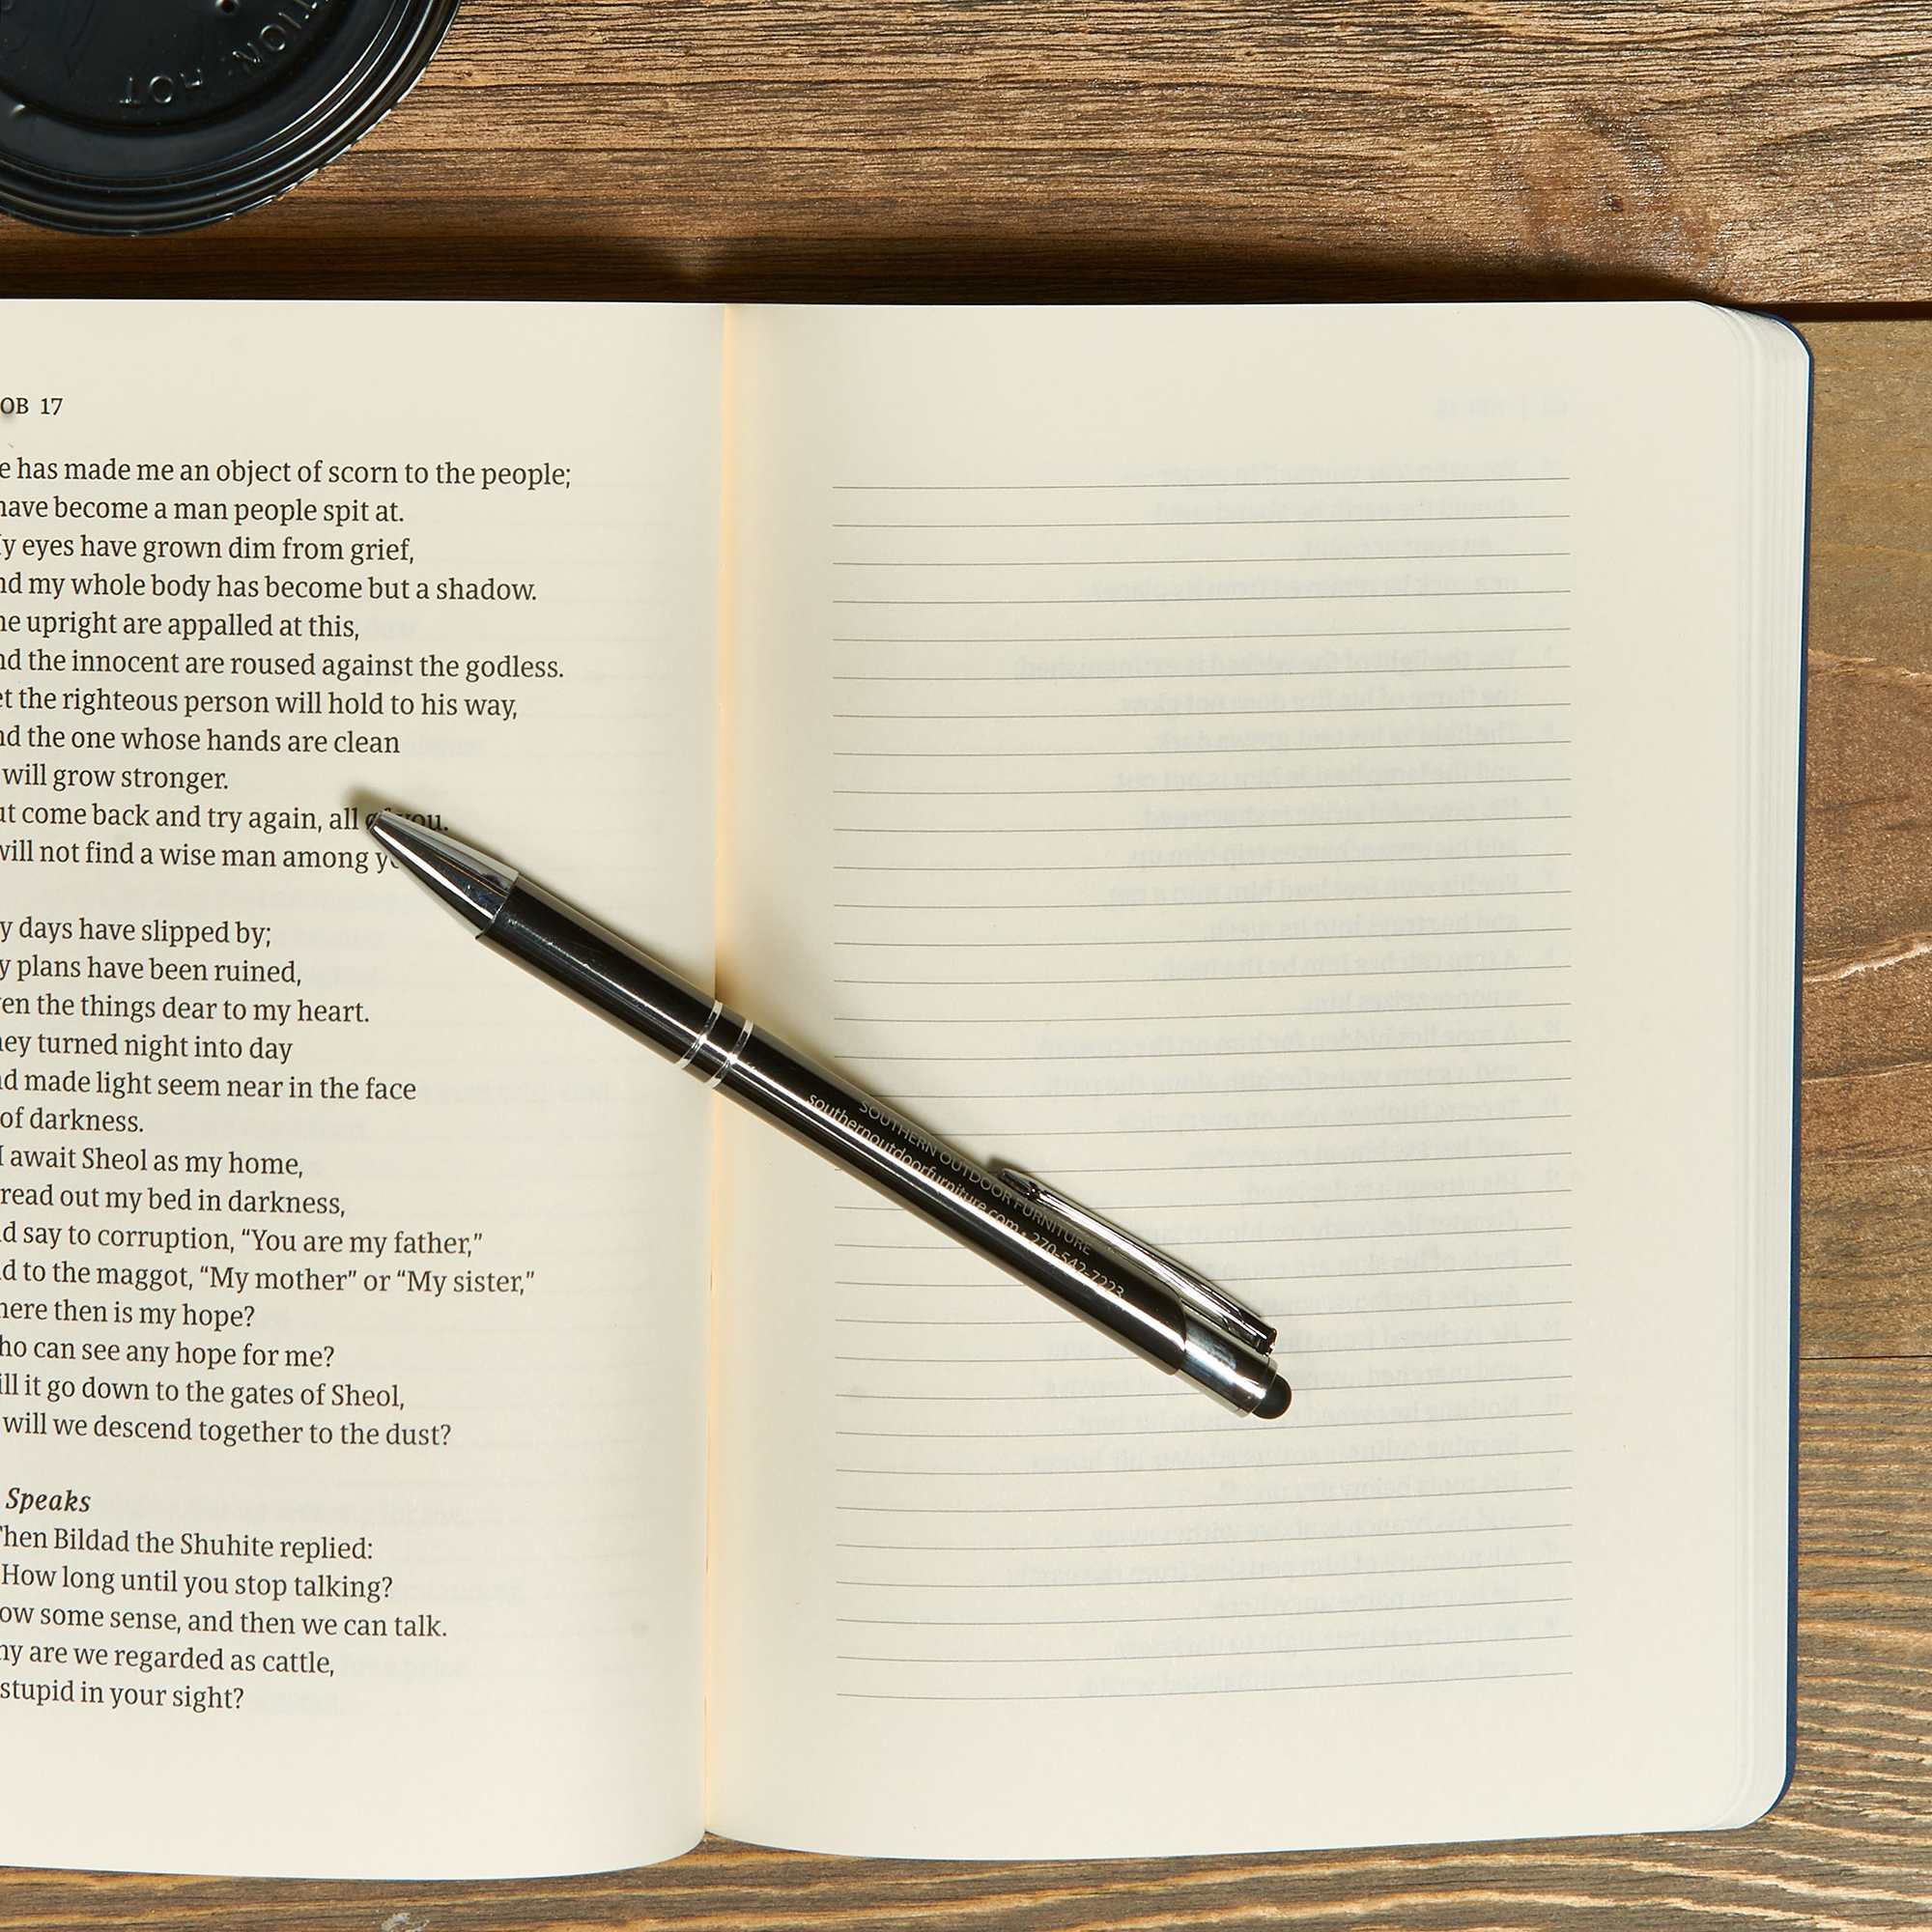 TION. HOT
OB 17
e has made me an object of scorn to the people;
have become a man people spit at.
y eyes have grown dim from grief,
nd my whole body has become but a shadow.
he upright are appalled at this,
nd the innocent are roused against the godless.
et the righteous person will hold to his way,
nd the one whose hands are clean
will grow stronger.
ut come back and try again, all of you.
will not find a wise man among yo
y days have slipped by;
y plans have been ruined,
ven the things dear to my heart.
hey turned night into day
nd made light seem near in the face
of darkness.
I await Sheol as my home,
read out my bed in darkness,
d say to corruption, “You are my father,”
d to the maggot, “My mother” or “My sister,”
here then is my hope?
ho can see any hope for me?
ill it go down to the gates of Sheol,
will we descend together to the dust?
Speaks
Then Bildad the Shuhite replied:
How long until you stop talking?
ow some sense, and then we can talk.
hy are we regarded as cattle,
stupid in your sight?
SOUTHERN OUTDOOR FURNITURE
southernoutdoorfurniture.com • 270-542-7223